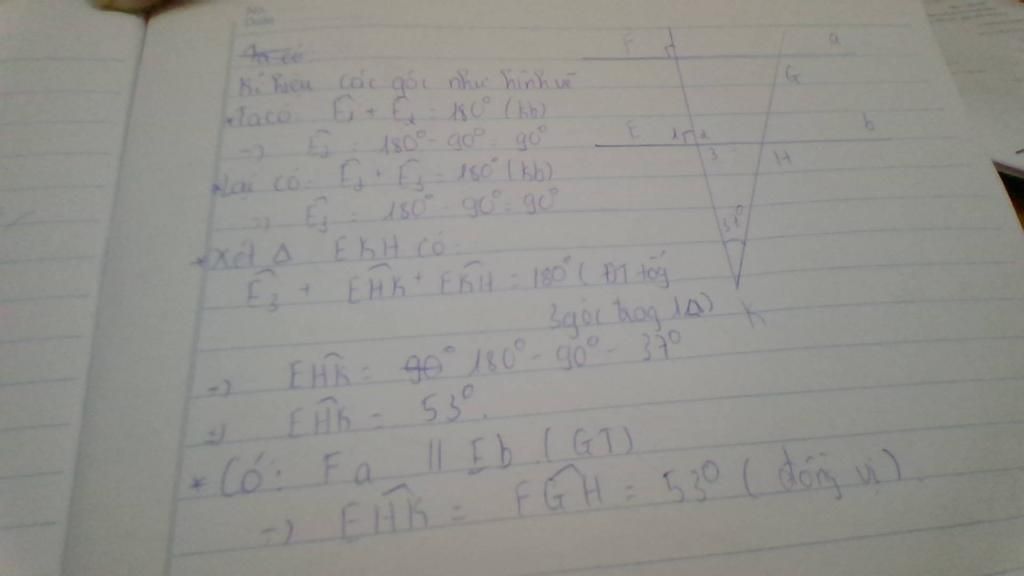 No.
Date
Ta có:
Kí hiệu các góc như hình vẽ
Ta có: Ê₁ + Ê₂ = 180° (kb)
=> Ê₂ = 180° - 90° = 90°
Lại có: Ê₂ + Ê₃ = 180° (kb)
=> Ê₃ = 180° - 90° = 90°
* Xét Δ EKH có:
Ê₃ + EĤK + EK̂H = 180° (ĐL tổng
3 góc trog 1Δ)
=> EĤK = 90° 180° - 90° - 37°
=> EĤK = 53°.
* Có: Fa // Eb (GT)
=> EĤK = FĜH = 53° (đồng vị).
F
a
G
E
1
2
b
3
H
37°
K